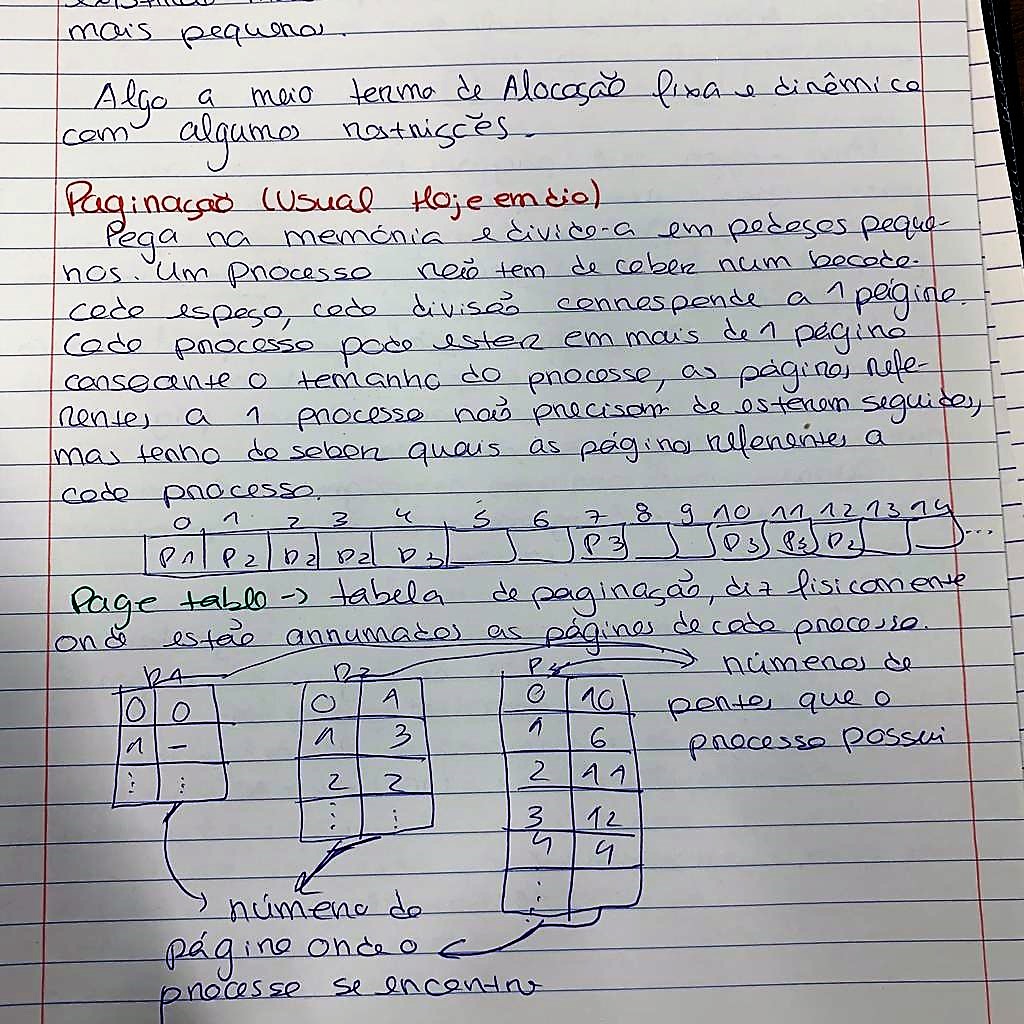 mais pequenos.
Algo a meio termo de Alocação fixa e dinâmica
com algumas restrições.
Paginação (Usual Hoje em dia)
Pega na memória e divide-a em pedaços peque-
nos. Um processo não tem de caber num bocado.
cada espaço, cada divisão corresponde a 1 página.
Cada processo pode estar em mais de 1 página
consoante o tamanho do processo, as páginas refe-
rentes a 1 processo não precisam de estarem seguidas,
mas tenho de saber quais as páginas referentes a
cada processo.
0 1 2 3 4 5 6 7 8 9 10 11 12 13 14
P1 P2 P2 P2 P3 P3 P3 P3 P2 ...
Page table -> tabela de paginação, diz fisicamente
onde estão arrumados as páginas de cada processo.
P1 P2 P3 números de
0 0 0 1 0 10 partes que o
1 - 1 3 1 6 processo possui
⋮ ⋮ 2 2 2 11
⋮ ⋮ 3 12
4 4
⋮
número da
página onde o
processo se encontra